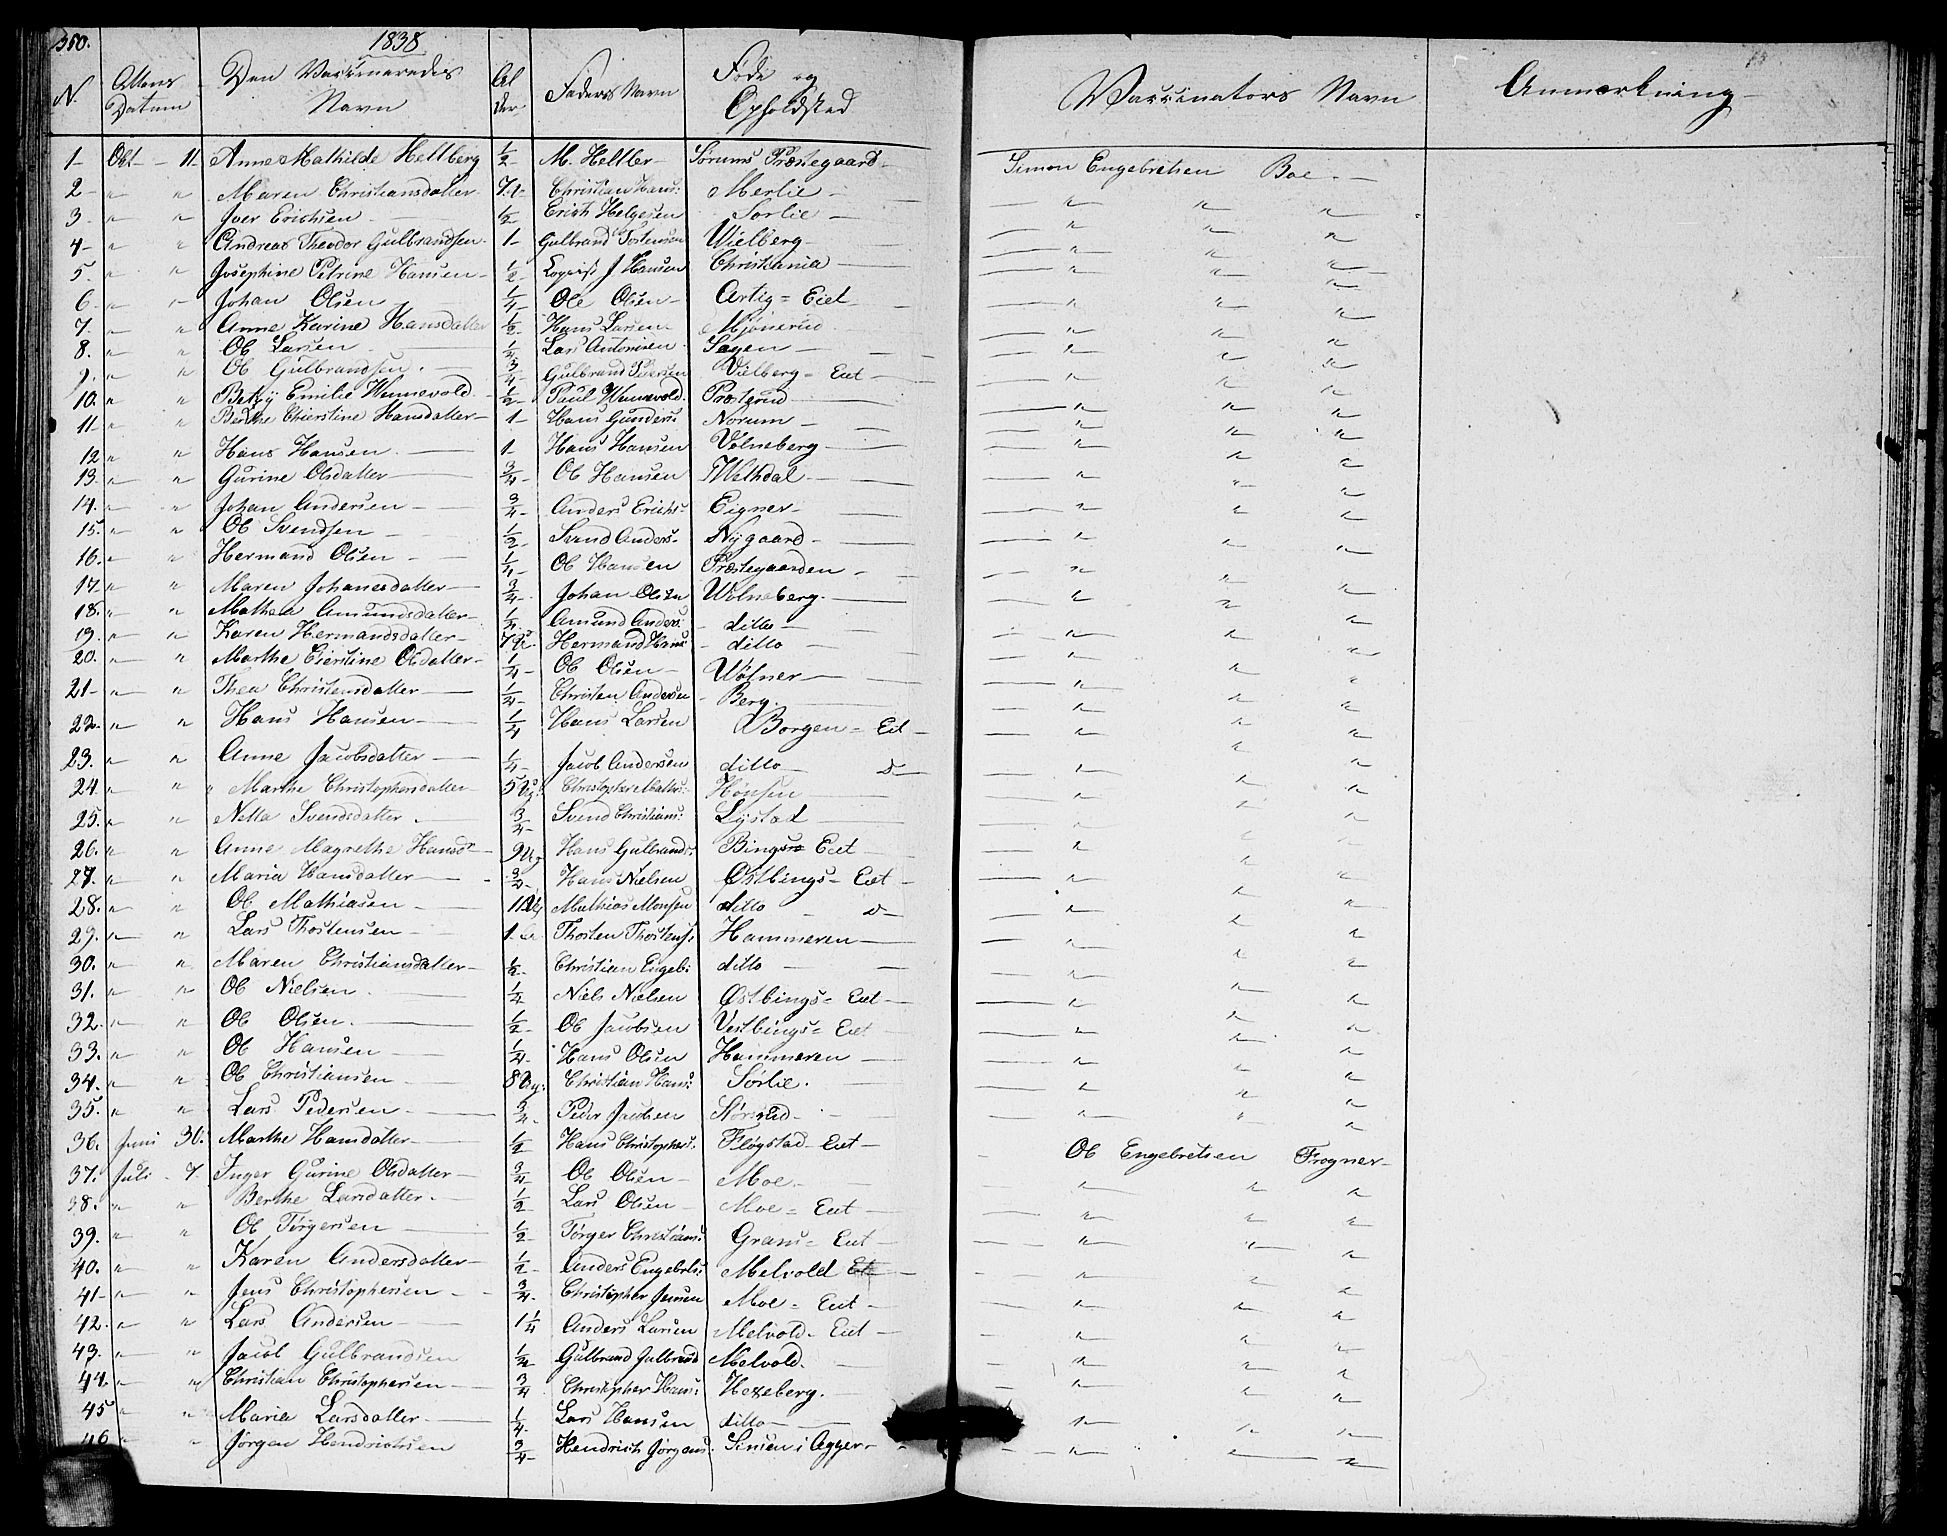 380.
1838
N.
Attens Datum
Den Vaccineredes Navn
Al der
Faders Navn
Føde og Opholdsted
Vaccinators Navn
Anmerkning
1- Obt - 11- Anne Mathilde Hellberg 1/2 M. Heltler- Sørums Præstegaard- Simon Engebretsen Boe. -
2- " " Maren Christiansdatter Christian Hans: Merlie - " " "
3- " " Iver Erichsen - 1/2 Erich Helgesen Sørlie - " " "
4- " " Andreas Theodor Gulbrandsen 1- Gulbrand Torstensen Wielberg- " " "
5. " " Josephine Petrine Hansen- 1/2 J Hansen Christiania - " " "
6- " " Johan Olsen - 1/4 Ole Olsen- Artig= Eiet- " " "
7. " " Anne Karine Hansdatter 1/2 Hans Larsen Mjønerud " " "
8. " " Ole Larsen 1/4 Lars Antonisen Sagen - " " "
9. " " Ole Gulbrandsen. - 3/4 Gulbrand Iversen Vielberg= Eiet - " " "
10. " " Betzy Emilie Wennevold 1/2 Paul Wennevold. Præsterud " " "
11- " " Berthe Chierstine Hansdatter- 1- Hans Gunders: Norum - " " "
12 " " Hans Hansen. - 1- Hans Hansen Vølneberg- " " "
13. " " Gurine Olsdatter- 3/4 Ole Hansen Wethdal- " " "
14. " " Johan Andersen - 3/4 Anders Erichs: Eigner- " " "
15. " " Ole Svendsen - 1/2 Svend Anders- Nygaard- " " "
16. " " Hermand Olsen - 1/4 Ole Hansen Præstegaarden - " " "
17. " " Maren Johanesdatter- 3/4 Johan Olsen Wolneberg. - " " "
18. " " Mathea Amundsdatter- 1/4 Amund Anders: ditto - " " "
19. " " Karen Hermandsdatter- Hermand Hans: ditto - " " "
20. " " Marthe Cierstine Olsdatter- 1/4 Ole Olsen- Wølner- " " "
21- " " Thea Christensdatter- 1/4 Christen Andersen Berg. " " "
22- " " Hans Hansen- 1/4 Hans Larsen Borgen= Eiet - " " "
23. " " Anne Jacobsdatter - 1/4 Jacob Andersen ditto d- " " "
24. " " Marthe Christophersdatter 5 Ug: Christopher Mathis: Hønsen " " "
25. " " Netta Svendsdatter. 3/4 Svend Christians: Lystad " " "
26. " " Anne Magrethe Hansd- 9 Ug Hans Gulbrands: Bings= Eiet - " " "
27. " " Maria Hansdatter- 3/4 Hans Nielsen Østbings= Eiet - " " "
28. " " Ole Mathiasen - 11 Ug Mathias Monsen ditto - d- " " "
29. " " Lars Thostensen - 1- Thosten Thostens: Hammeren - " " "
30. " " Maren Christiansdatter- 1/2 Christian Engeb: ditto - " " "
31. " " Ole Nielsen. - 1/4 Niels Nielsen Østbings= Eiet- " " "
32. " " Ole Olsen. - 1/2 Ole Jacobsen Vestbings= Eiet " " "
33. " " Ole Hansen - 1/4 Hans Olsen Hammeren - " " "
34. " " Ole Christiansen - 8 Ug: Christian Hans: Sørlie. " " "
35. " " Lars Pedersen - 3/4 Peder Jacobsen Størsrud- " " "
36. Juni 30. Marthe Hansdatter- 1/2 Hans Christophers: Fløgstad- Eiet - Ole Engebretsen Frogner-
37. Juli - 7. Inger Gurine Olsdatter- 3/4 Ole Olsen- Moe. " " "
38. " " Berthe Larsdatter. 1/2 Lars Olsen- Moe= Eiet - " " "
39. " " Ole Tørgersen - 1/2 Tørger Christians: Grans= Eiet - " " "
40. " " Karen Andersdatter- 1/2 Anders Engebrets: Melvold Eie- " " "
41- " " Jens Christophersen - 3/4 Christopher Jensen Moe= Eiet - " " "
42. " " Lars Andersen - 1 1/4 Anders Larsen Melvold- Eiet - " " "
43. " " Jacob Gulbrandsen Gulbrand Gulbrand Melvold. " " "
44. " " Christian Christophersen- 3/4 Christopher Hans: Hexeberg. " " "
45 " " Maria Larsdatter- 1/4 Lars Hansen ditto - " " "
46 " " Jørgen Hendrichsen 3/4 Hendrich Jørgens: i Agger- " " "